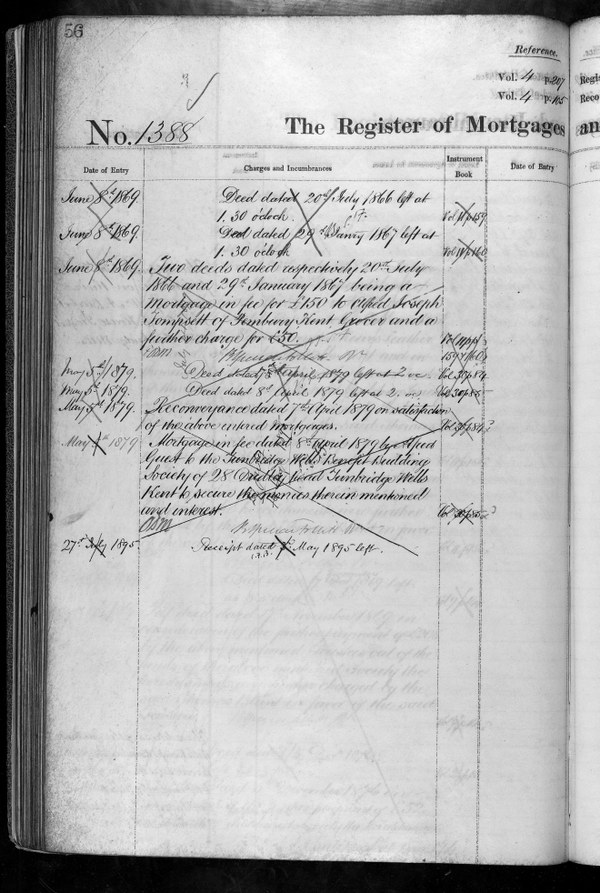 56
Reference.
Vol. 4 p. 207
Vol. 4 p. 105
No. 1388 The Register of Mortgages an
Regis
Reco
Date of Entry Charges and Incumbrances Instrument Book Date of Entry
June 8th 1869. Deed dated 20th July 1866 left at
1. 30 o'clock.
June 8th 1869. Deed dated 29th January 1867 left at
1. 30 o'clock
June 8th 1869 Two deeds dated respectively 20th July
1866 and 29th January 1867 being a
Mortgage in fee for £150 to Alfred Joseph
Tompsett of Pembury Kent, Grocer and a
further charge for £50.
May 5th 1879. Deed dated 7th April 1879 left at 2. oc.
May 5th 1879. Deed dated 8th April 1879 left at 2. oc
May 5th 1879. Reconveyance dated 7th April 1879 on satisfaction
of the above entered mortgages.
May 1879 Mortgage in fee dated 8th April 1879 by Alfred
Guest to the Tunbridge Wells Benefit Building
Society of 28 Dudley Road Tunbridge Wells
Kent to secure the monies therein mentioned
and interest.
27th July 1895. Receipt dated May 1895 left.